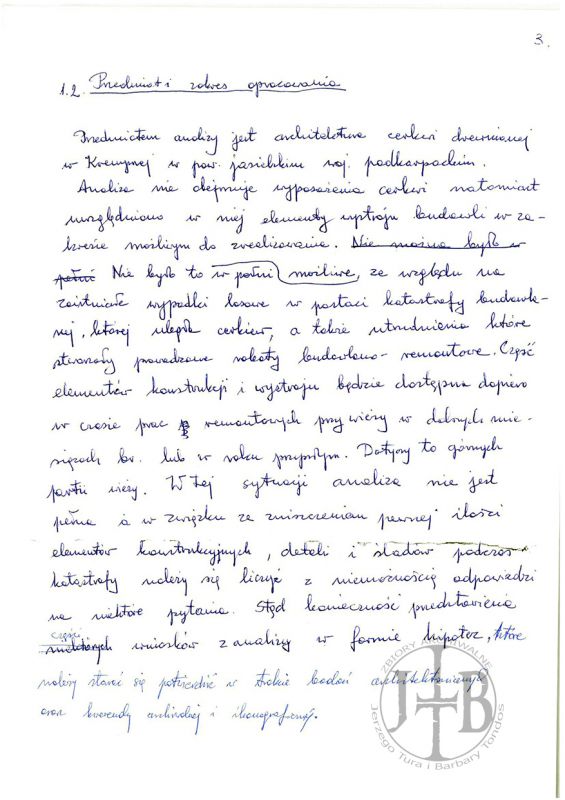 3.
1.2. Przedmiot i zakres opracowania
Przedmiotem analizy jest architektura cerkwi drewnianej
w Krempnej w pow. jasielskim woj. podkarpackim.
Analiza nie obejmuje wyposażenia cerkwi natomiast
uwzględniono w niej elementy wystroju budowli w za-
kresie możliwym do zrealizowania. Nie można było w
pełni Nie było to w pełni możliwe, ze względu na
zaistniałe wypadki losowe w postaci katastrofy budowla-
nej, której uległa cerkiew, a także utrudnienia które
stwarzały prowadzone roboty budowlano-remontowe. Część
elementów konstrukcji i wystroju będzie dostępna dopiero
w czasie prac remontowych przy wieży w dalszych mie-
siącach br. lub w roku przyszłym. Dotyczy to górnych
partii wieży. W tej sytuacji analiza nie jest
pełna a w związku ze zniszczeniem pewnej ilości
elementów konstrukcyjnych, detali i śladów podczas
katastrofy należy się liczyć z niemożnością odpowiedzi
na niektóre pytania. Stąd konieczność przedstawienia
części
niektórych wniosków z analizy w formie hipotez, które
należy starać się potwierdzić w trakcie badań architektonicznych
oraz kwerendy archiwalnej i ikonograficznej.
ZBIORY ARCHIWALNE
JTB
Jerzego Tura i Barbary Tondos